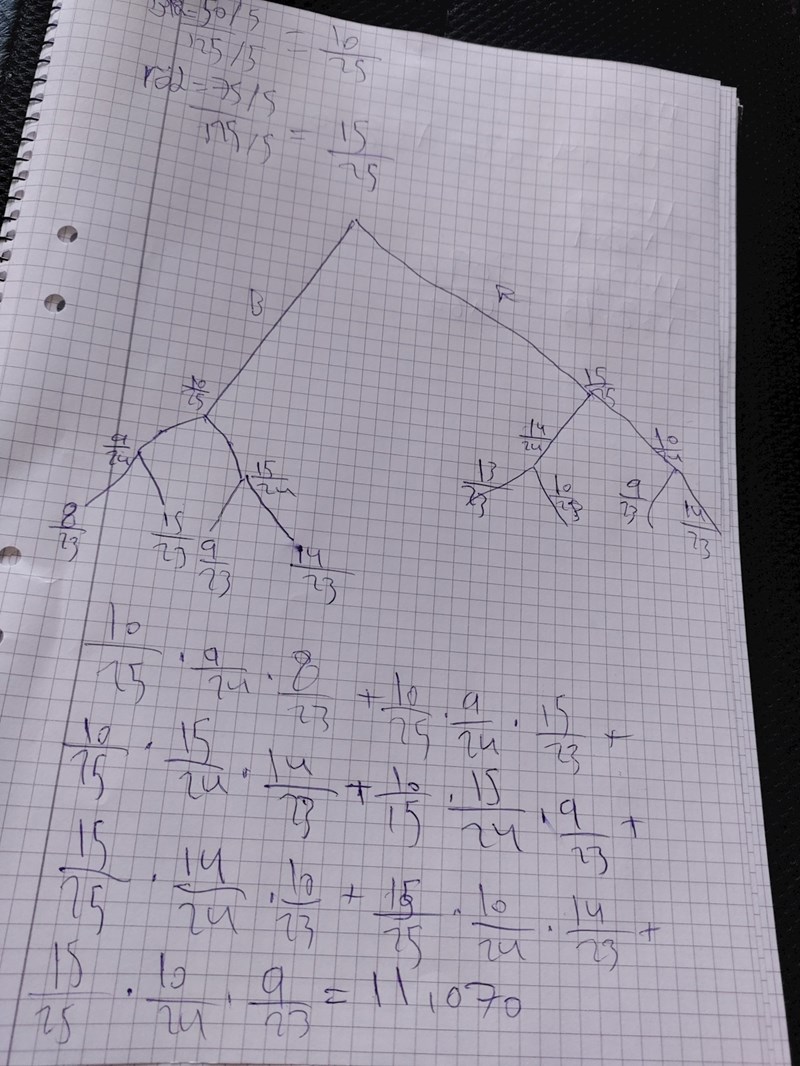 Blå = 50/5 / 125/5 = 10/25
röd = 75/5 / 125/5 = 15/25
B R
10/25 15/25
9/24 15/24 14/24 10/24
8/23 15/23 9/23 14/23 13/23 10/23 9/23 14/23
10/25 · 9/24 · 8/23 + 10/25 · 9/24 · 15/23 +
10/25 · 15/24 · 14/23 + 10/15 · 15/24 · 9/23 +
15/25 · 14/24 · 10/23 + 15/25 · 10/24 · 14/23 +
15/25 · 10/24 · 9/23 = 11,070